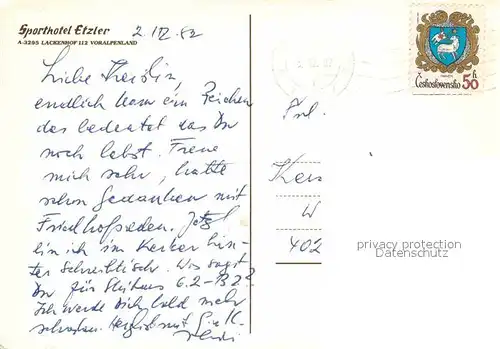 Sporthotel Etzler
A-3295 LACKENHOF 112 VORALPENLAND
2. IV. 82
Liebe Kerstin,
endlich kam ein Zeichen
das bedeutet das Du
noch lebst. Freue
mich sehr, hatte
schon Gedanken mit
Friedhofseden. Jetzt
bin ich im Kerker hin-
ter Schreibtisch. Was sagst
Du für 6.2-13.2?
Ich werde Dich bald mehr
schreiben. Herzlichst mit
Československo 50 h
Frl.
Ker
W
402
privacy protection
Datenschutz